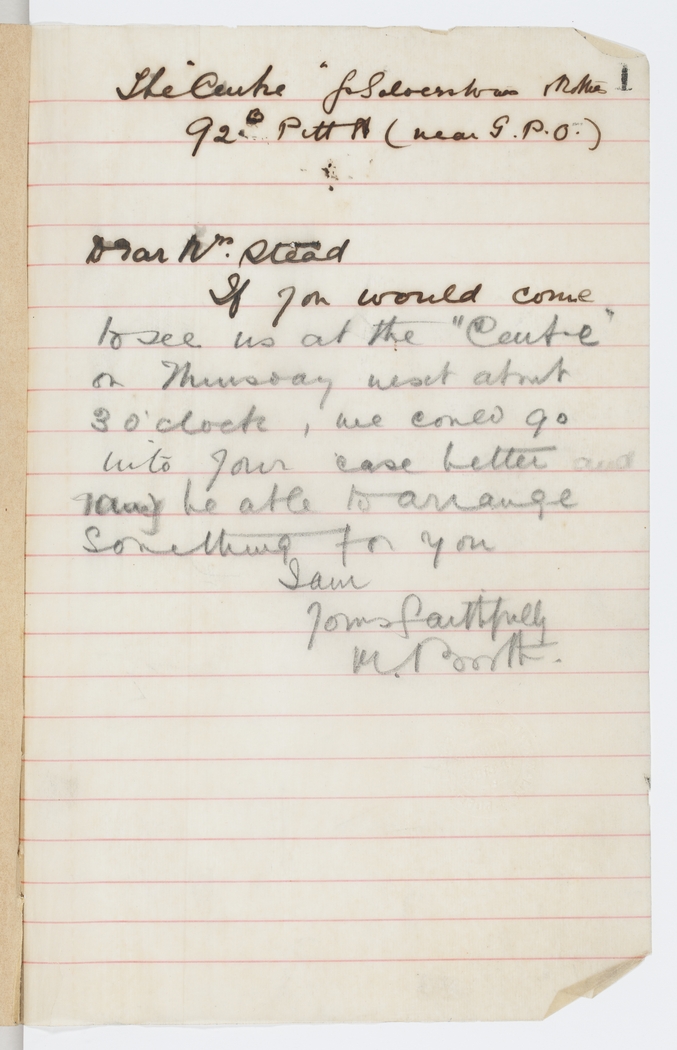 The "Centre" for Soldiers Wives & Mothers 1
92B Pitt St (near G.P.O.)
Dear Mrs. Stead
If you would come
to see us at the "Centre"
on Thursday next about
3 o'clock, we could go
into your case better and
may be able to arrange
something for you
I am
Yours faithfully
M. Booth.